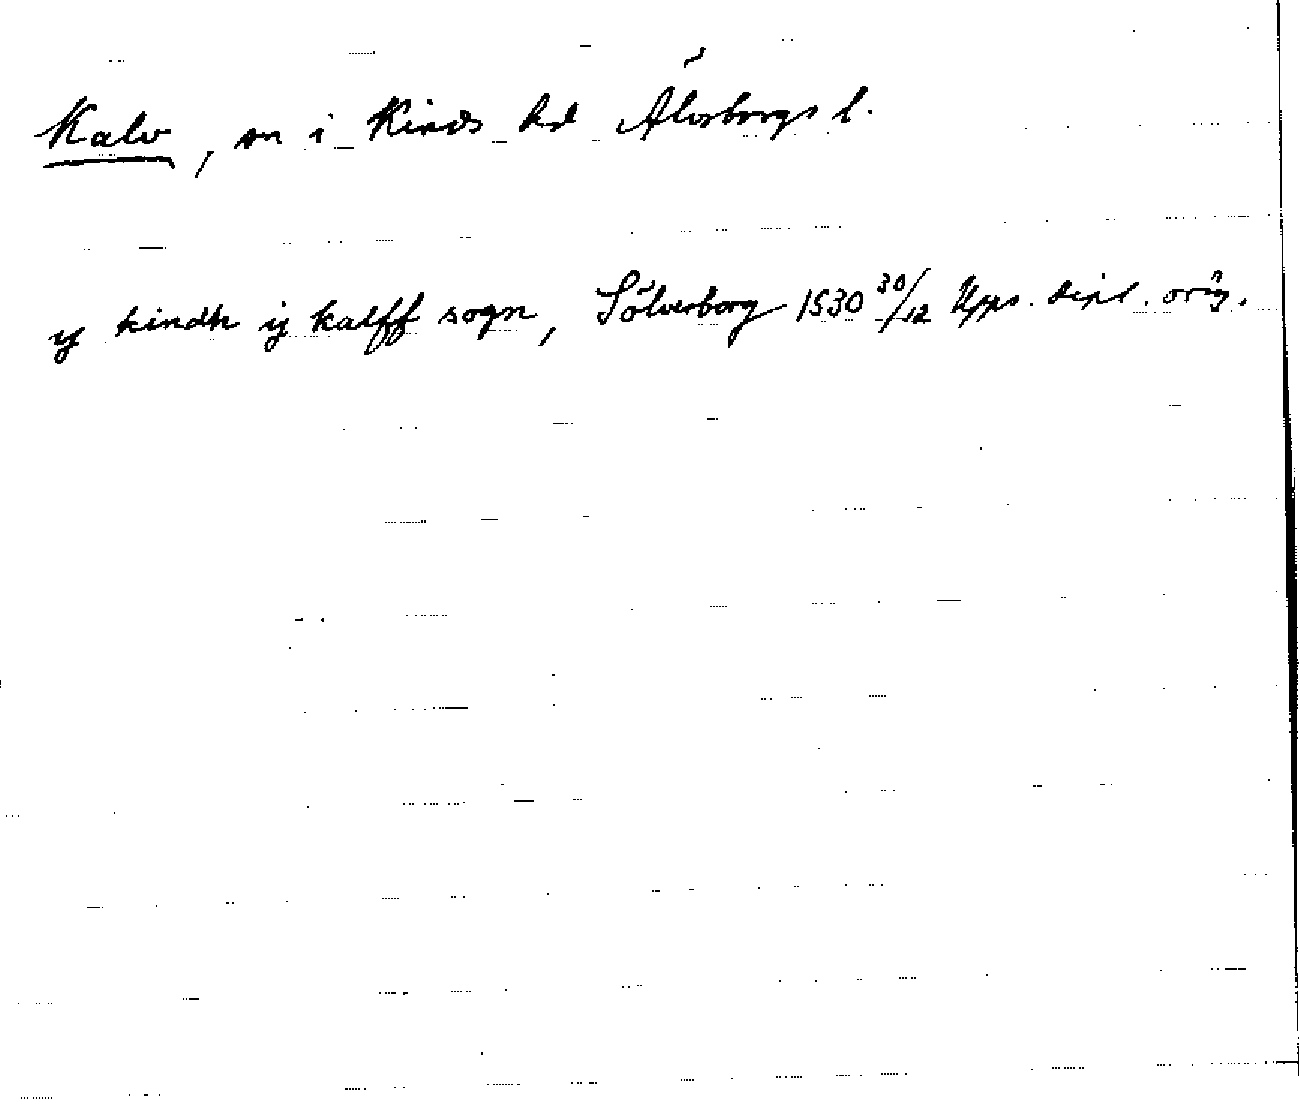 Kalv, sn i Kinds hd Älvsborgs l.
ij kindh ij kalff sogn, Sölvesborg 1530 30/12 Upps. dipl. orig.